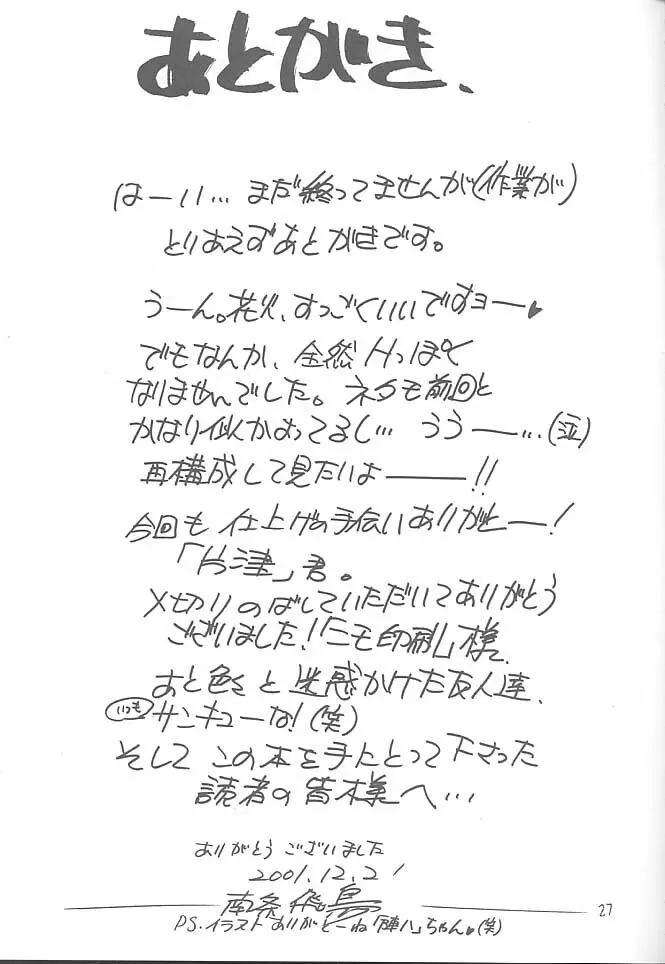 あとがき、
はーい…まだ終ってませんが(作業が)
とりあえずあとがきです。
うーん。花火、すっごくいいですョー♥
でもなんか、全然Hっぽく
なりませんでした。ネタも前回と
かなり似かよってるし…ううー…(泣)
再構成して見たいよ――!!
今回も仕上げの手伝いありがとー!
「片津」君。
〆切りのばしていただいてありがとう
ございました!「ニモ印刷」様。
あと色々と迷惑かけた友人達、
いつもサンキューな!(笑)
そしてこの本を手にとって下さった
読者の皆様へ…
ありがとうございました
2001.12.21
南条飛鳥
27
PS.イラストありがとーね「陣八」ちゃん♥(笑)